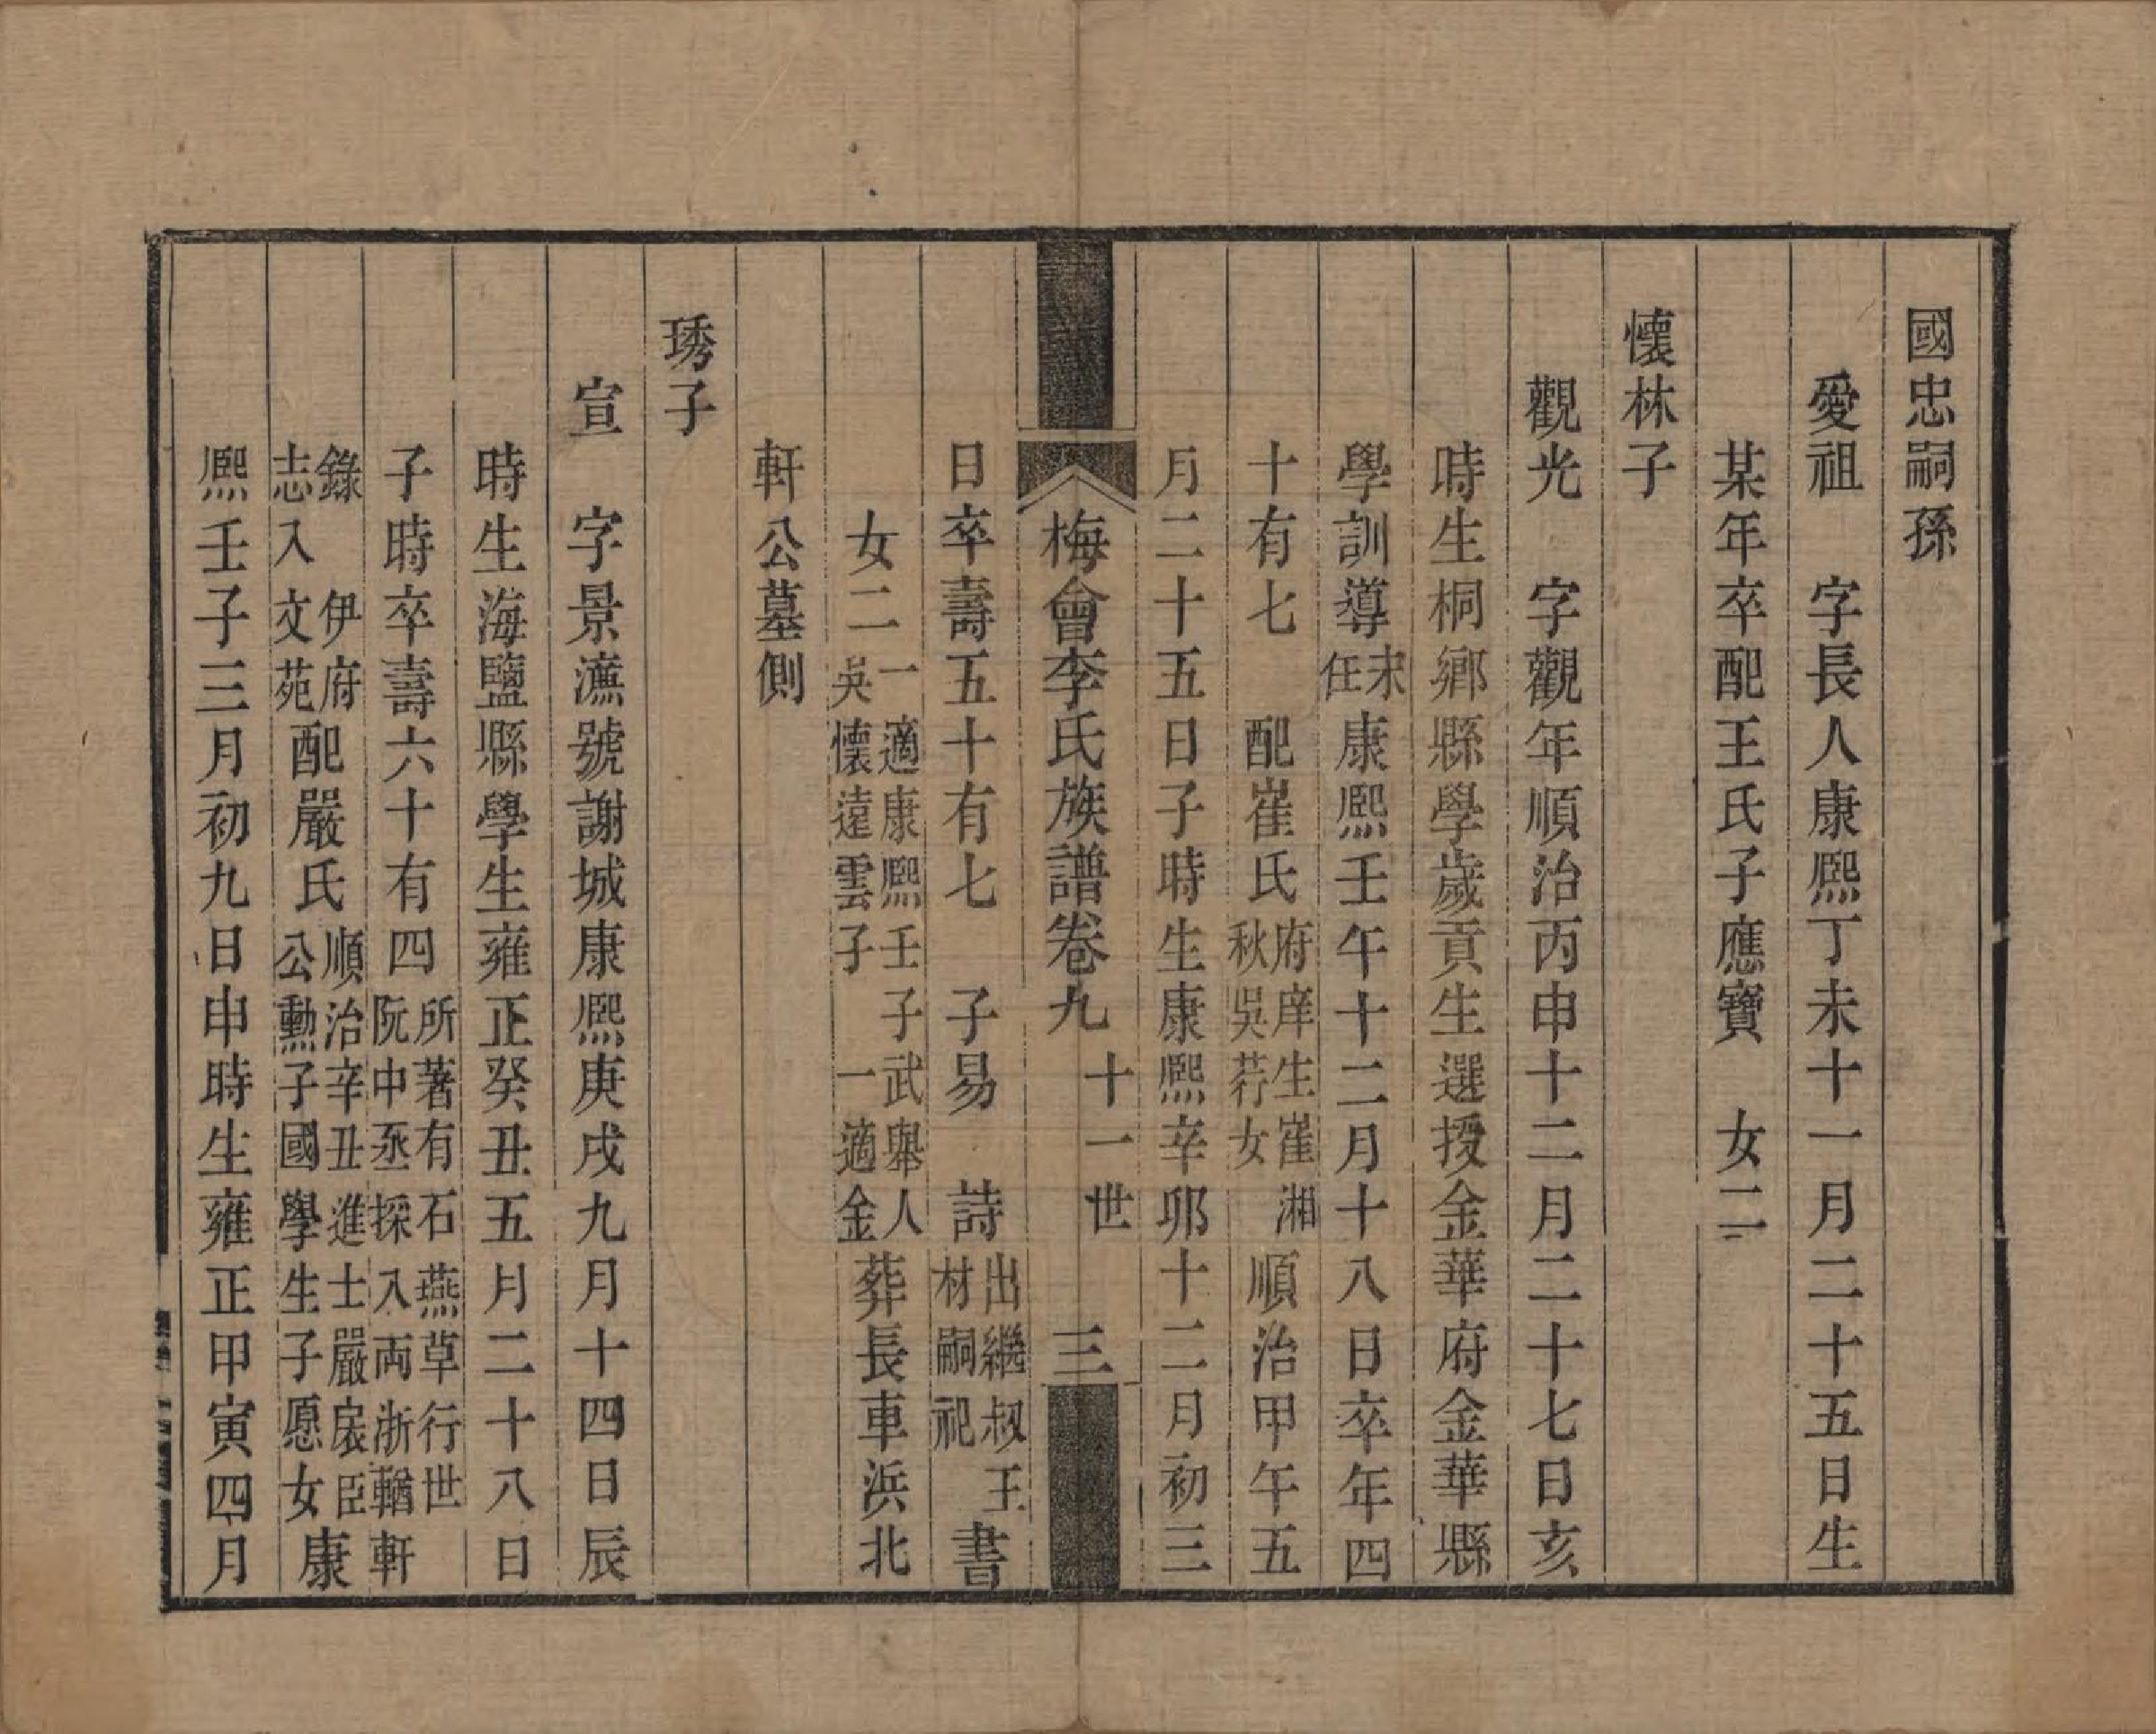 國忠嗣孫
愛祖　字長人康熙丁未十一月二十五日生
某年卒配王氏子應寶　女二
懷林子
觀光　字觀年順治丙申十二月二十七日亥
時生桐鄉縣學歲貢生選授金華府金華縣
學訓導未任康熙壬午十二月十八日卒年四
十有七　配崔氏府庠生崔湘秋吳荇女順治甲午五
月二十五日子時生康熙辛卯十二月初三
梅會李氏族譜卷九　十一世　三
日卒壽五十有七　子易　詩出繼叔王材嗣祀書
女二一適康熙壬子武舉人吳懷遠雲子　一適金葬長車浜北
軒公墓側
琇子
宣　字景㶆號謝城康熙庚戌九月十四日辰
時生海鹽縣學生雍正癸丑五月二十八日
子時卒壽六十有四所著有石燕草行世阮中丞採入兩浙輶軒
錄　伊府志入文苑配嚴氏順治辛丑進士嚴宸臣公勳子國學生子愿女康
熙壬子三月初九日申時生雍正甲寅四月